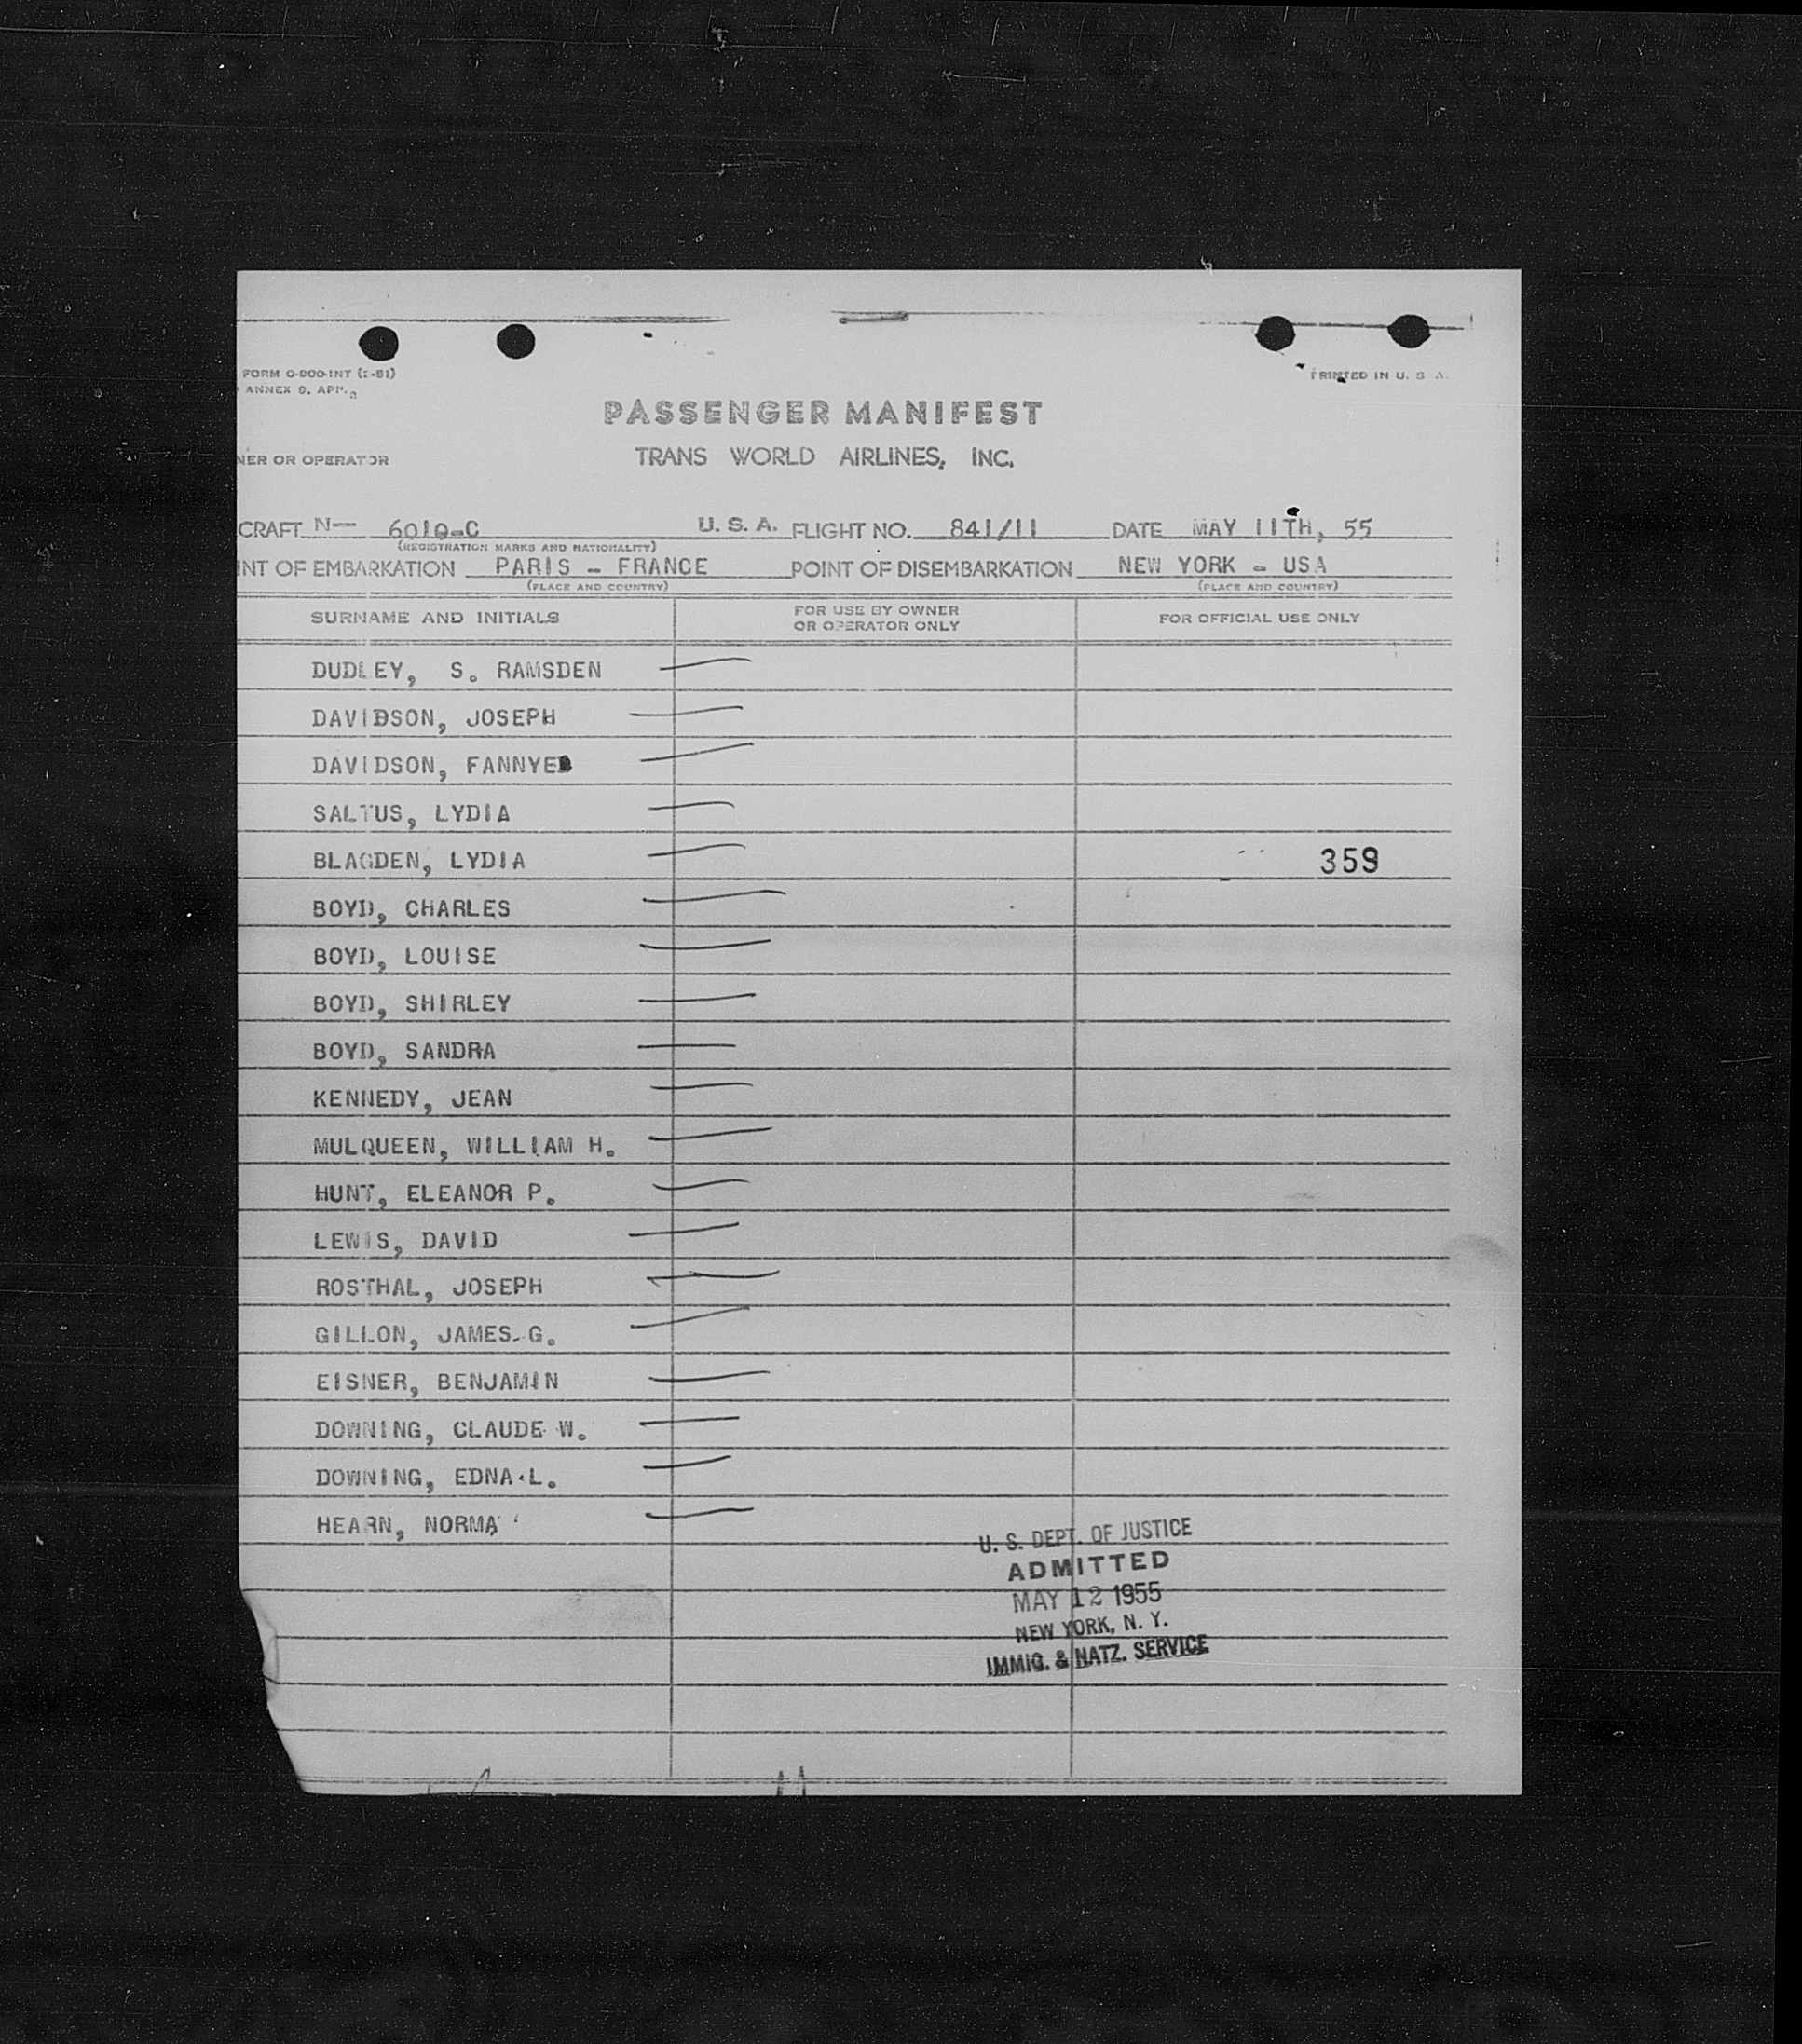 FORM O-900-INT (1-51)
PRINTED IN U. S. A.
ANNEX 9, APP.
PASSENGER MANIFEST
NER OR OPERATOR TRANS WORLD AIRLINES, INC.
CRAFT N— 6010-C U. S. A. FLIGHT NO. 841/11 DATE MAY 11TH, 55
(REGISTRATION MARKS AND NATIONALITY)
INT OF EMBARKATION PARIS - FRANCE POINT OF DISEMBARKATION NEW YORK - USA
(PLACE AND COUNTRY) (PLACE AND COUNTRY)
SURNAME AND INITIALS FOR USE BY OWNER OR OPERATOR ONLY FOR OFFICIAL USE ONLY
DUDLEY, S. RAMSDEN
DAVIDSON, JOSEPH
DAVIDSON, FANNYE
SALTUS, LYDIA
BLAGDEN, LYDIA 359
BOYD, CHARLES
BOYD, LOUISE
BOYD, SHIRLEY
BOYD, SANDRA
KENNEDY, JEAN
MULQUEEN, WILLIAM H.
HUNT, ELEANOR P.
LEWIS, DAVID
ROSTHAL, JOSEPH
GILLON, JAMES G.
EISNER, BENJAMIN
DOWNING, CLAUDE W.
DOWNING, EDNA L.
HEARN, NORMA
U. S. DEPT. OF JUSTICE
ADMITTED
MAY 12 1955
NEW YORK, N. Y.
IMMIG. & NATZ. SERVICE